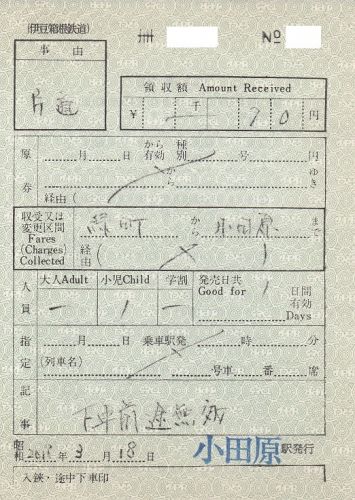 (伊豆箱根鉄道) 冊 No
事由
片道
領収額 Amount Received
¥ 千 70円
原券 月 日 から有効 種別 号 円
から ゆき
経由(
収受又は変更区間 Fares (Charges) Collected 緑町 から 小田原 まで
経由( )
人員 大人Adult 小児Child 学割 発売日共 Good for 1 日間有効 Days
— 1 —
指定 月 日 乗車駅発 時 分
(列車名) 号車 番 席
記事 下車前途無効
昭和 年 3月 18日 小田原駅発行
入鋏・途中下車印